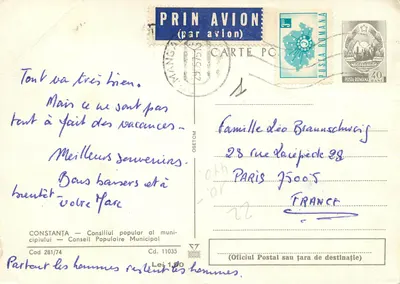 PRIN AVION
(par avion)
CARTE PO
POSTA ROMANA
Tout va très bien.
Mais ce ne sont pas
tout à fait des vacances -
Meilleurs souvenirs.
Bons baisers et à
bientôt -
votre Marc
Famille Léo Braunschwig
28 rue Lacépède 28
PARIS 75005
FRANCE
CONSTANȚA — Consiliul popular al muni-
cipiului — Conseil Populaire Municipal
Cod 281/74
Cd. 11035
Lei 1,00
(Oficiul Postal sau țara de destinație)
Partout les hommes restent les hommes.